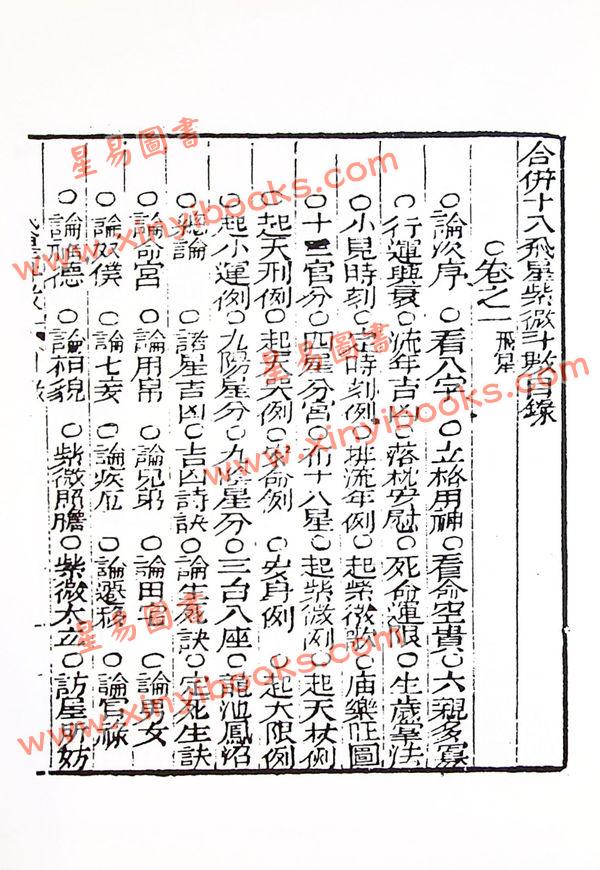 合併十八飛星紫微斗數目錄
○卷之一 飛星
○論次序 ○看八字 ○立格用神 ○看命空貴 ○六親多寡
○行運興衰 ○流年吉凶 ○落枕安慰 ○死命運限 ○生歲掌法
○小兒時刻 ○定時刻例 ○排流年例 ○起紫微歌 ○庙樂旺圖
○十二宫分 ○四星分宫 ○布十八星 ○起紫微例 ○起天杖例
○起天刑例 ○起天哭例 ○安命例 ○安身例 ○起大限例
○起小運例 ○九陽星分 ○九陰星分 ○三台八座 ○龍池鳳
○總論 ○諸星吉凶 ○吉凶詩訣 ○論生死訣 ○定死生訣
○論命宫 ○論用帛 ○論兄弟 ○論田宅 ○論男女
○論奴僕 ○論七妾 ○論疾厄 ○論遷移 ○論官祿
○論福德 ○論相貌 ○紫微照膽 ○紫微太立 ○訪星所妨
星易圖書
www.xinyibooks.com
星易圖書
www.xinyibooks.com
星易圖書
www.xinyibooks.com